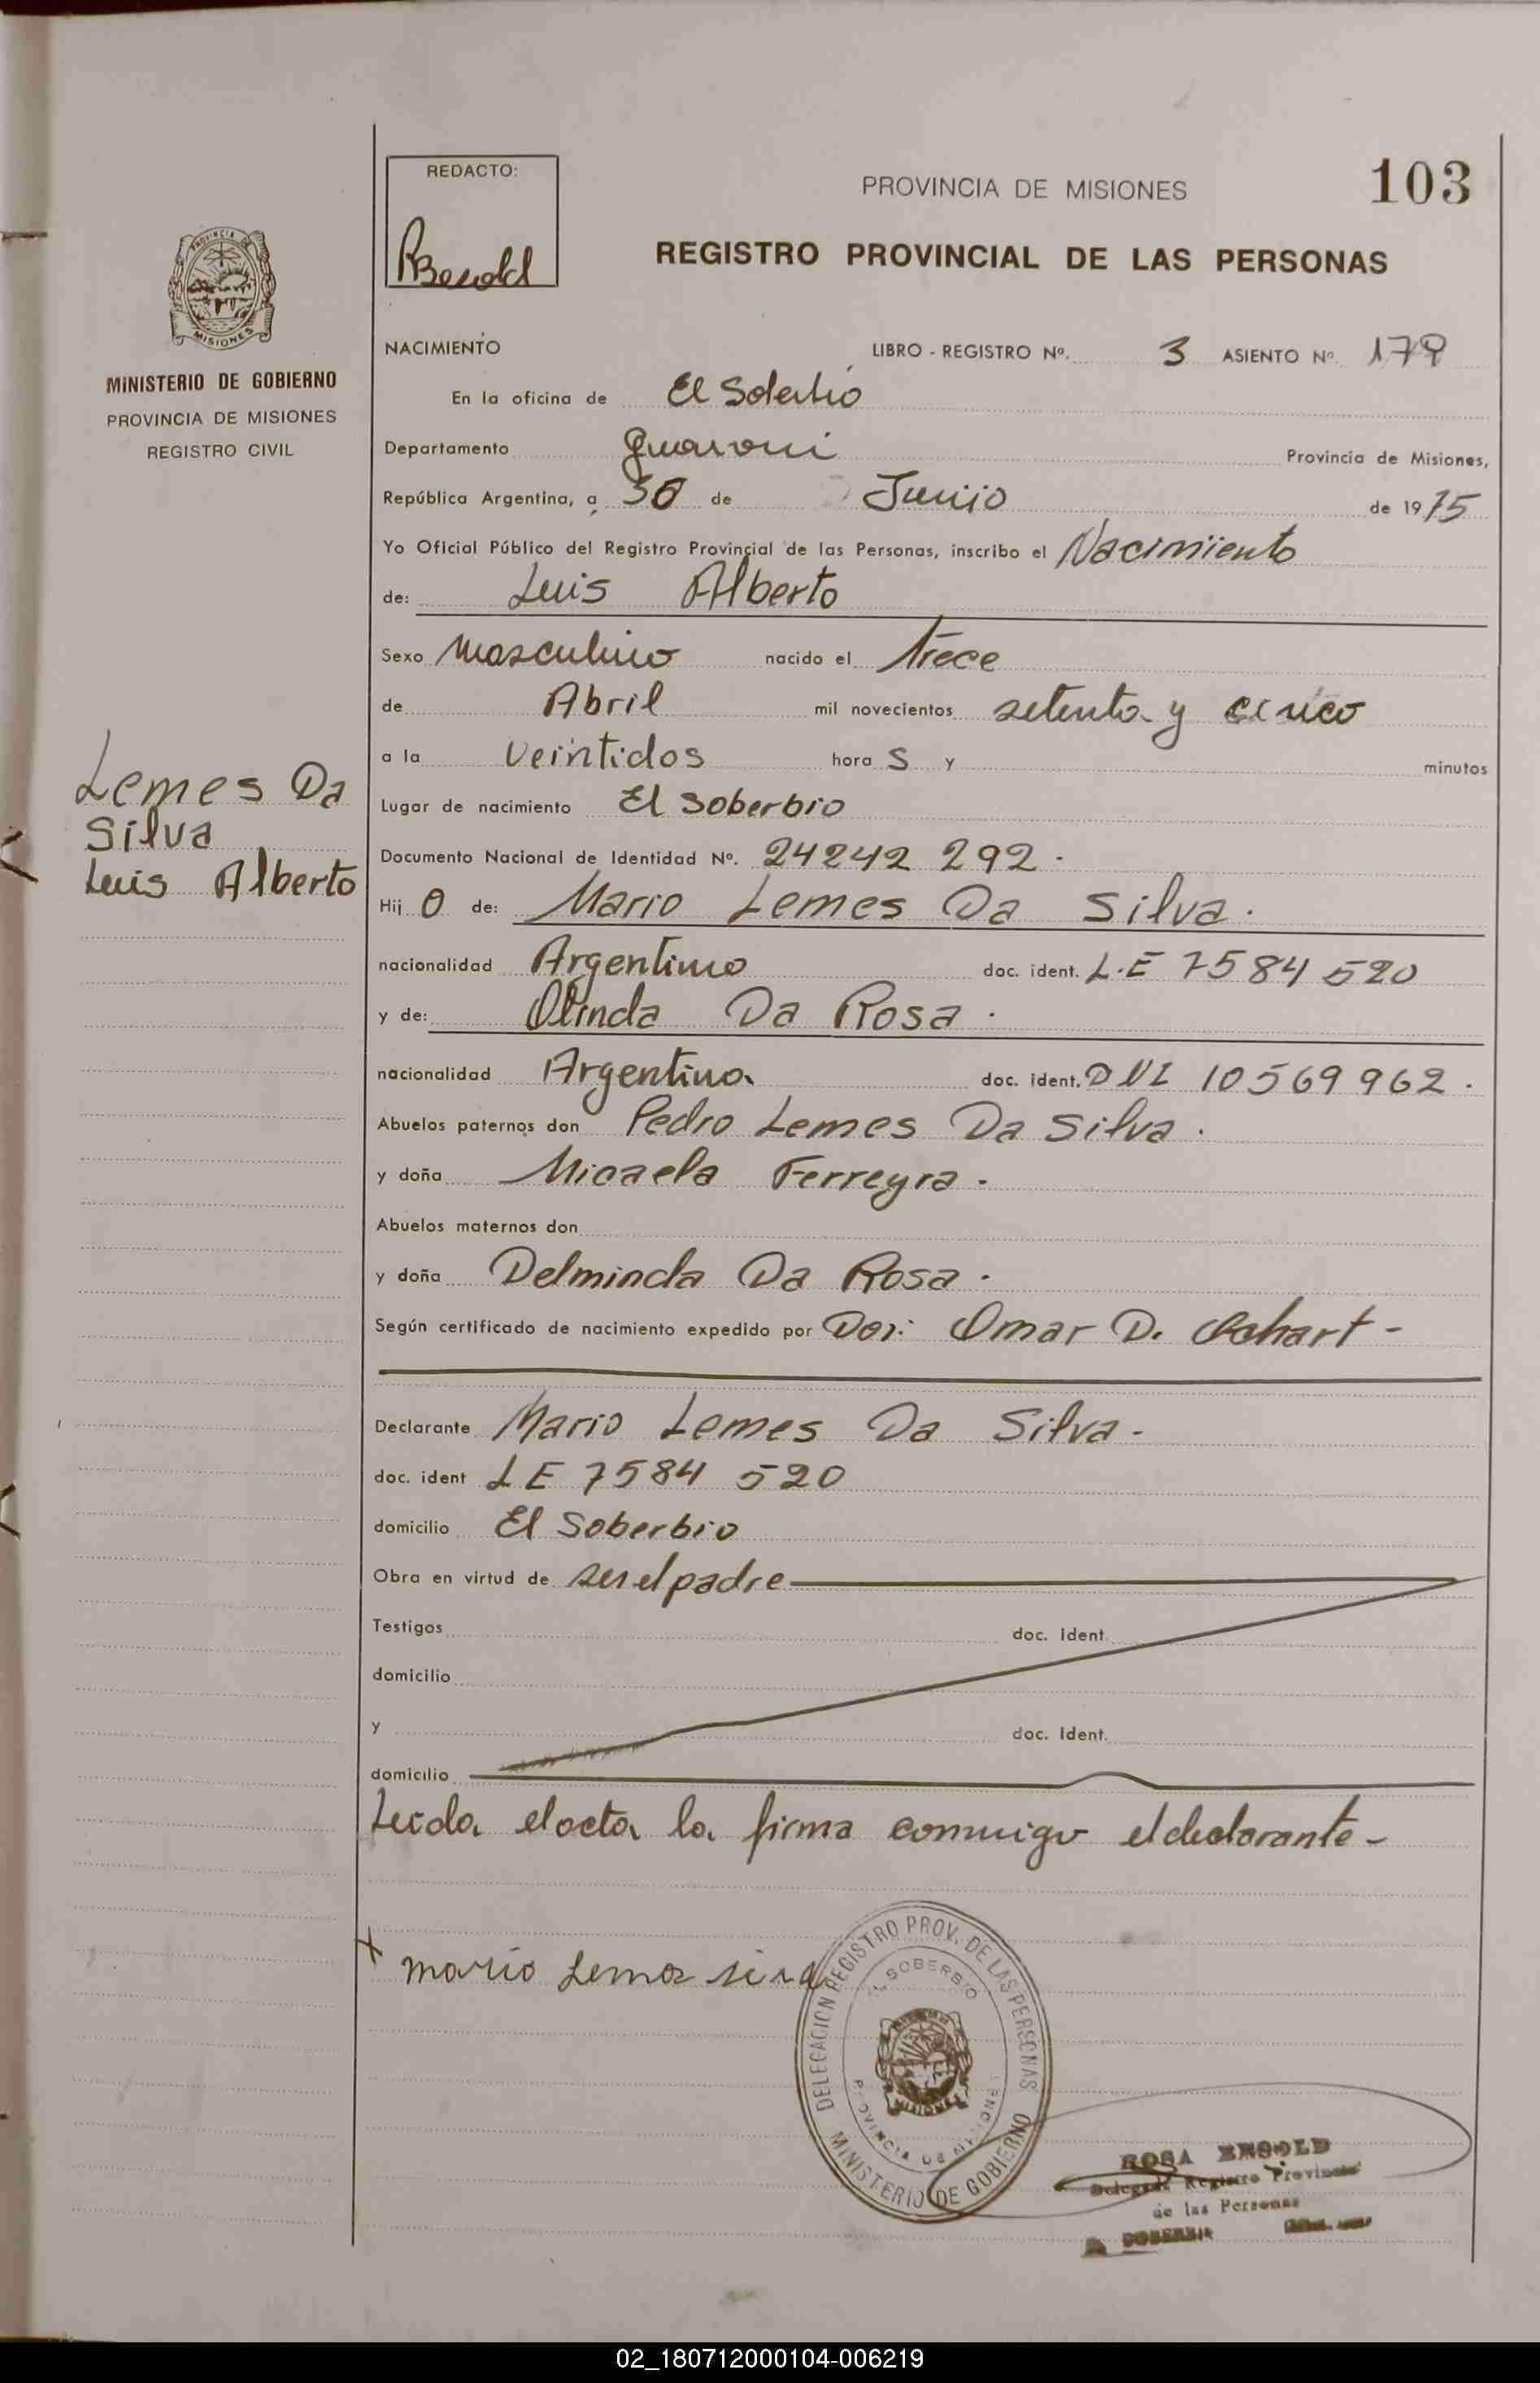 REDACTO:
PROVINCIA DE MISIONES
103
REGISTRO PROVINCIAL DE LAS PERSONAS
PROVINCIA DE
MISIONES
MINISTERIO DE GOBIERNO
PROVINCIA DE MISIONES
REGISTRO CIVIL
NACIMIENTO LIBRO - REGISTRO Nº. 3 ASIENTO Nº. 179
En la oficina de El Soberbio
Departamento Guarani Provincia de Misiones,
República Argentina, a 30 de Junio de 1975
Yo Oficial Público del Registro Provincial de las Personas, inscribo el Nacimiento
de: Luis Alberto
Sexo Masculino nacido el trece
de Abril mil novecientos setenta y cinco
a la veintidos hora s y minutos
Lemes Da
Silva
Luis Alberto
Lugar de nacimiento El Soberbio
Documento Nacional de Identidad Nº. 24242 292.
Hij o de: Mario Lemes Da Silva.
nacionalidad Argentino doc. ident. L.E 7584 520
y de: Olinda Da Rosa.
nacionalidad Argentina doc. ident. DNI 10569962.
Abuelos paternos don Pedro Lemes Da Silva.
y doña Micaela Ferreyra.
Abuelos maternos don
y doña Delminda Da Rosa.
Según certificado de nacimiento expedido por Omar D. Ochart -
Declarante Mario Lemes Da Silva.
doc. ident LE 7584 520
domicilio El Soberbio
Obra en virtud de ser el padre
Testigos doc. ident.
domicilio
y doc. Ident.
domicilio
Leida el acta la firma conmigo el declarante -
x mario Lemes
DELEGACION REGISTRO PROV. DE LAS PERSONAS
EL SOBERBIO
PROVINCIA DE MISIONES
MISIONES
MINISTERIO DE GOBIERNO
ROSA
Delegada Registro Provincial
de las Personas
SOBERBIO
02_180712000104-006219